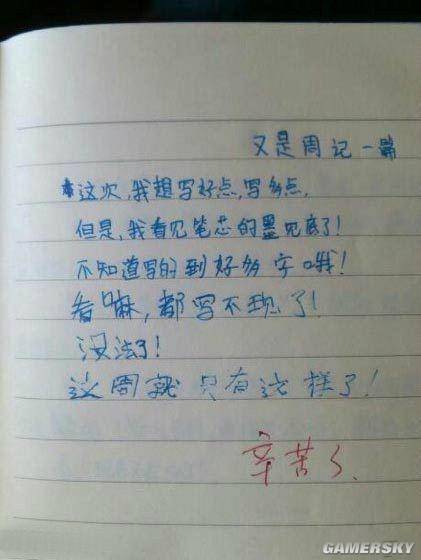 又是周记一篇
这次,我想写好点,写多点.
但是,我看见笔芯的墨见底了!
不知道写的到好多字哦!
看嘛,都写不现了!
没法了!
这周就只有这样了!
辛苦了.
GAMERSKY